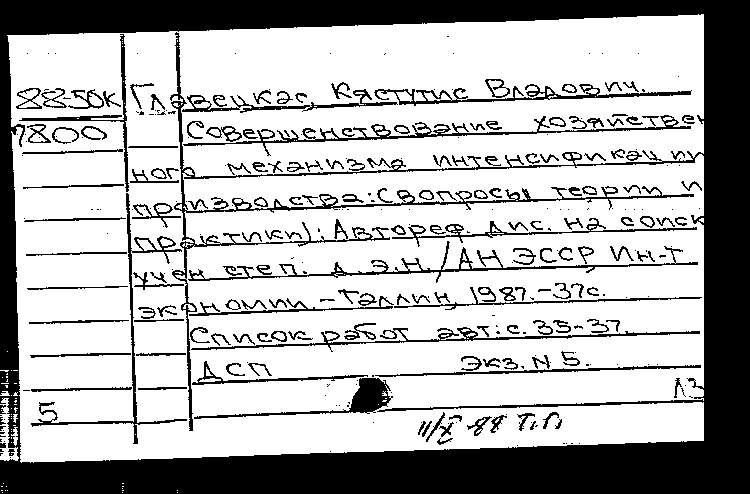 88-50К Главецкас, Кястутис Владович.
7800 Совершенствование хозяйствен
ного механизма интенсификации
производства: (вопросы теории и
практики): Автореф. дис. на соиск
учен степ. д. э.н. / АН ЭССР, Ин-т
экономии. - Таллин, 1987. - 37с.
Список работ авт: с. 35-37.
ДСП Экз. N 5.
ЛЗ
5
11/X-88 Т.П.